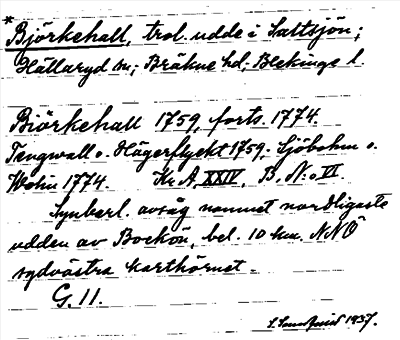 *Björkehall, trol. udde i Saltsjön;
Hällaryd sn; Bräkne hd; Blekinge l.
Biörkehall 1759, forts. 1774.
Tengwall o. Hägerflyckt 1759. Sjöbohm o.
Wohn 1774. Kr. A. XXIV, B. N:o VI.
Synberl. avsåg namnet nordligaste
udden av Bockön, bel. 10 km. NNÖ
sydvästra karthörnet.
G. 11.
1937.